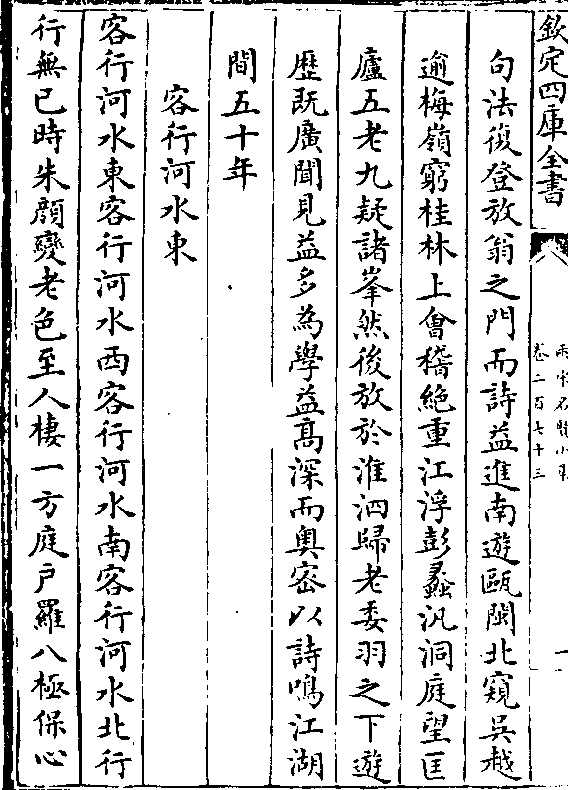 欽定四庫全書
卷二百七十三
句法復登放翁之門而詩益進南遊甌閩北窺吳越
逾梅嶺窮桂林上會稽絶重江浮彭蠡汎洞庭望匡
廬五老九疑諸峯然後放於淮泗歸老委羽之下遊
歴既廣聞見益多為學益髙深而奥宻以詩鳴江湖
間五十年
客行河水東
客行河水東客行河水西客行河水南客行河水北行
行無已時朱顔變老色至人棲一方庭户羅八極保心